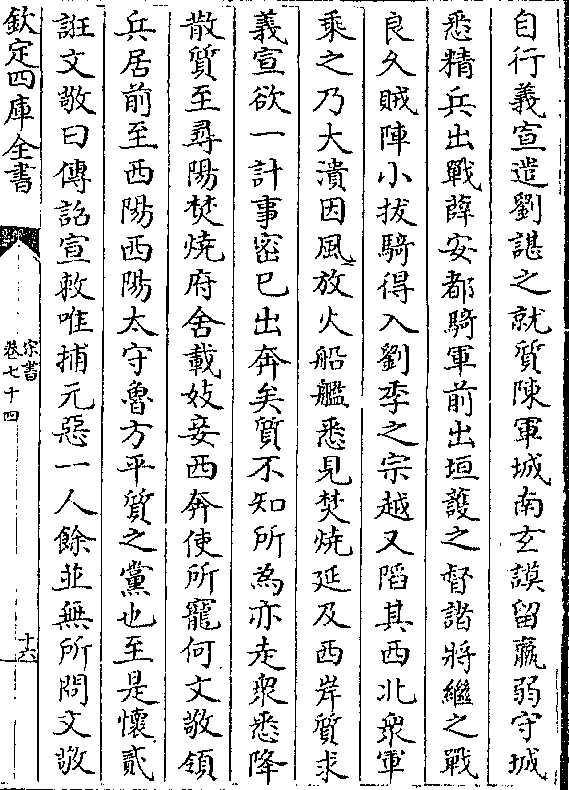 自行義宣遣劉諶之就質陳軍城南玄謨留羸弱守城
悉精兵出戰薛安都騎軍前出垣護之督諸將繼之戰
良久賊陣小拔騎得入劉季之宗越又陷其西北衆軍
乘之乃大潰因風放火船艦悉見焚燒延及西岸質求
義宣欲一計事密已出奔矣質不知所為亦走衆悉降
散質至尋陽焚燒府舍載妓妾西奔使所寵何文敬領
兵居前至西陽西陽太守魯方平質之黨也至是懷貳
誑文敬曰傳詔宣敕唯捕元惡一人餘並無所問文敬
欽定四庫全書
宋書
卷七十四
十六